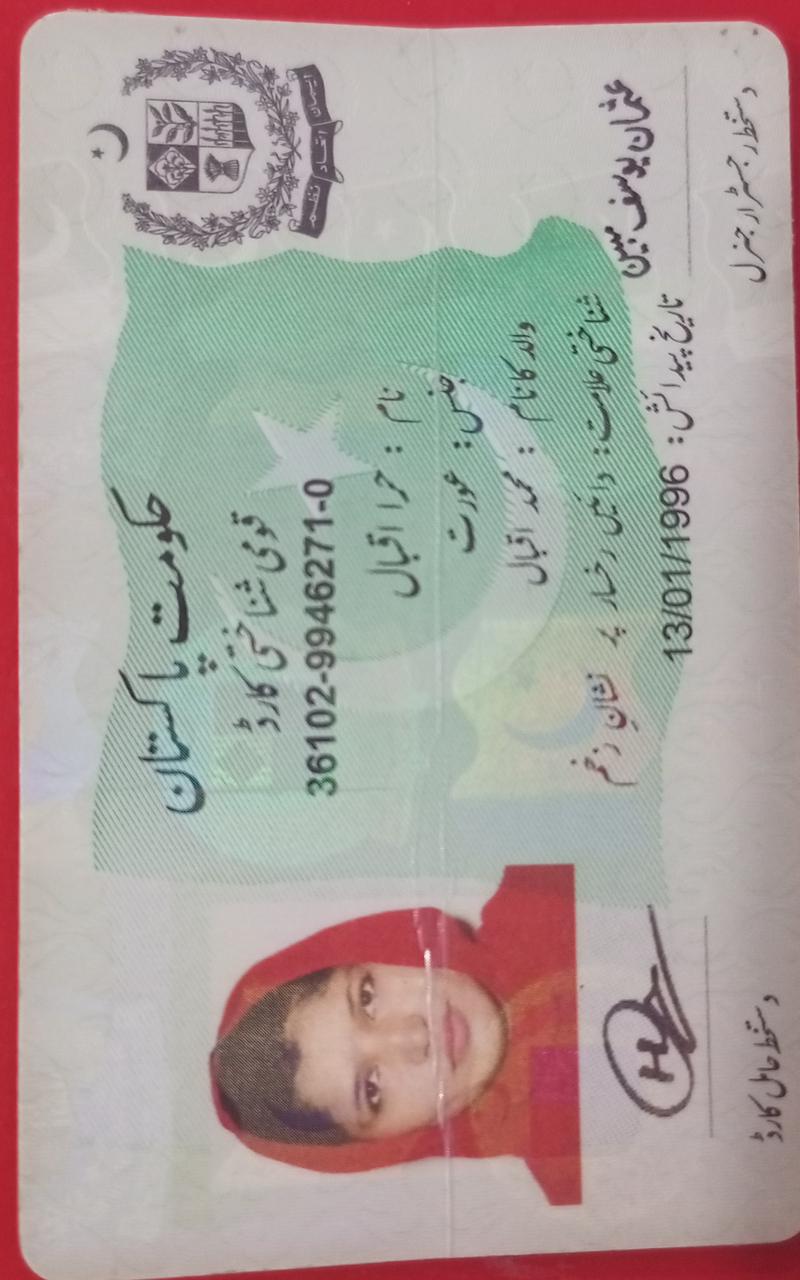 ایمان اتحاد نظم
حکومت پاکستان
قومی شناختی کارڈ
36102-9946271-0
نام : حرا اقبال
جنس : عورت
والد کا نام : محمد اقبال
شناختی علامت : دائیں رخسار پر نشانِ زخم
تاریخ پیدائش : 13/01/1996
عثمان یوسف مبین
دستخط رجسٹرار جنرل
دستخط حامل کارڈ